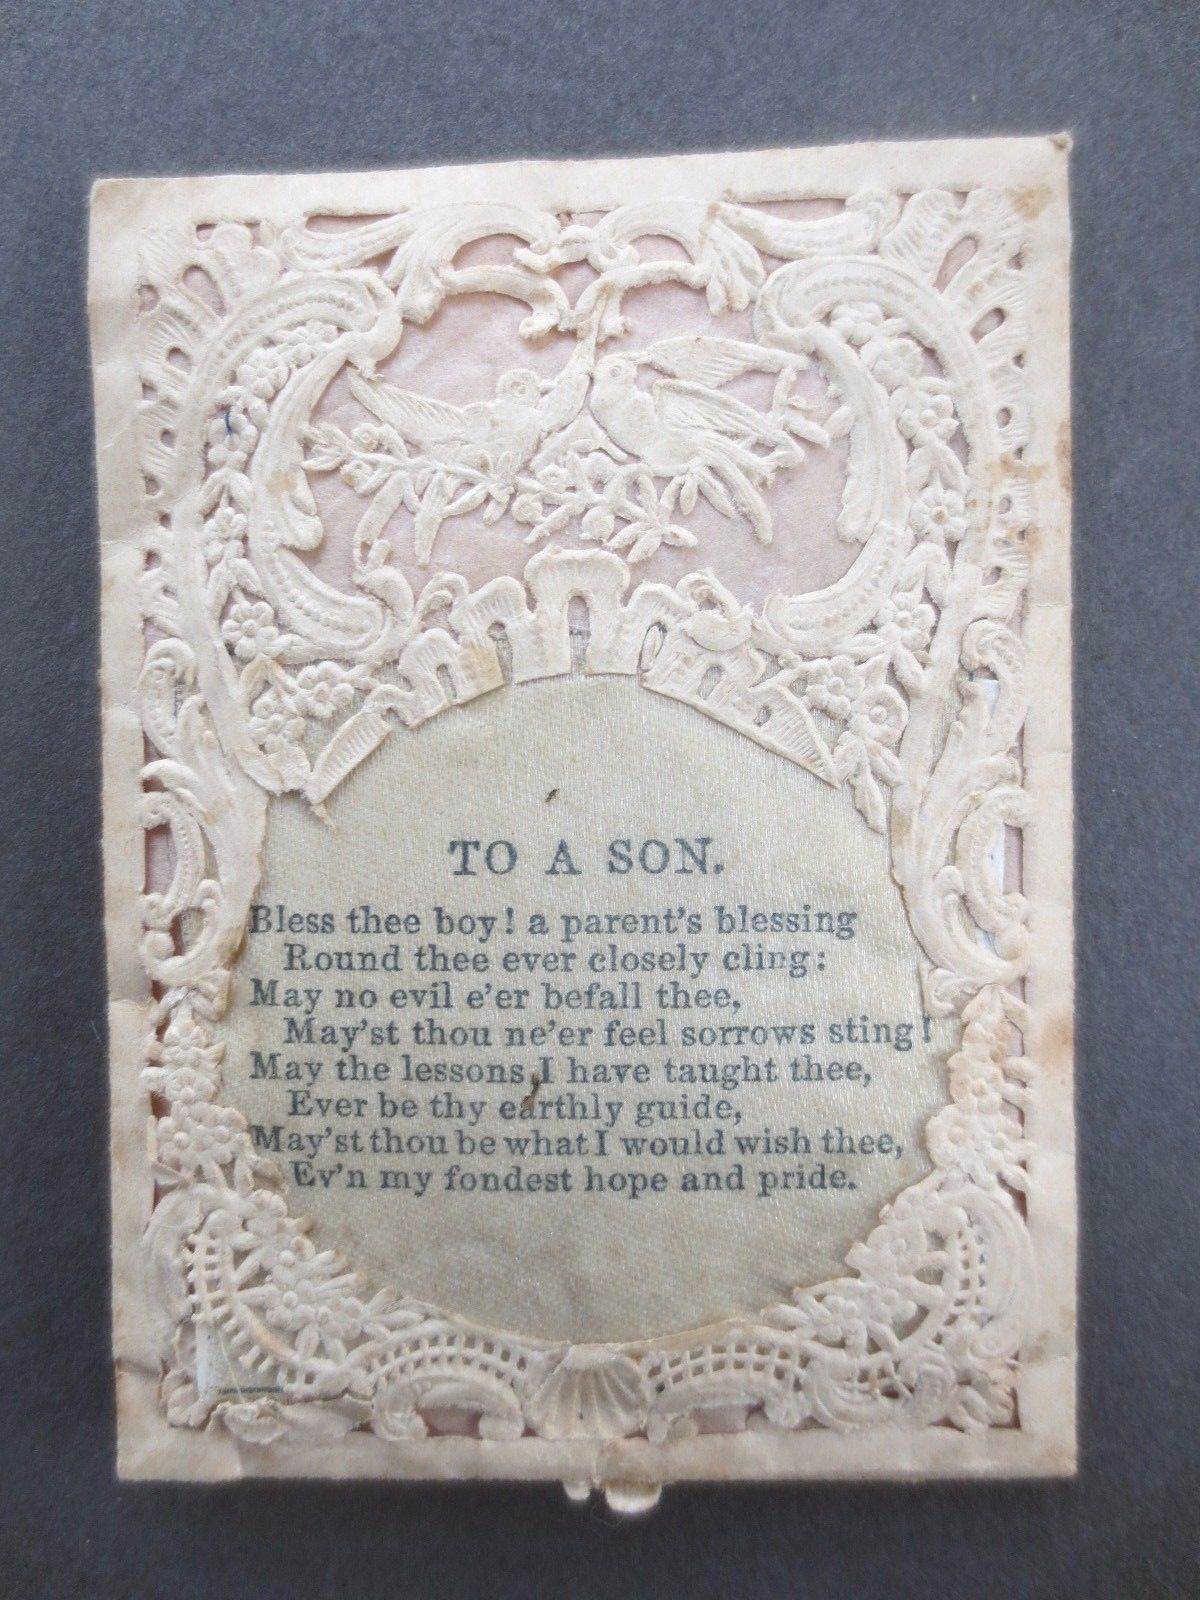 TO A SON.
Bless thee boy! a parent's blessing
Round thee ever closely cling:
May no evil e'er befall thee,
May'st thou ne'er feel sorrows sting!
May the lessons I have taught thee,
Ever be thy earthly guide,
May'st thou be what I would wish thee,
Ev'n my fondest hope and pride.